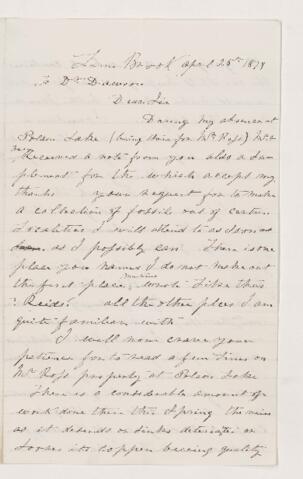 Brook April 25th 1879
To Dr Dawson
Dear Sir
During my absence at
Polson Lake (being there for Mr Ross) Mr
Received a note from you also a Sup
plement for the which accept my
thanks your request for to make
a collection of fossils out of certain
localities I will attend to as soon as
as I possibly can There is one
place you names I do not make out
the first place wrote like this
Reids all the other places I am
quite familiar with
I will now crave your
patience for to read a few lines on
Mr Ross property at Polson Lake
There is a considerable amount of
work done there this Spring the
as it depends or sinks deteriates or
looses its copper bearing quality